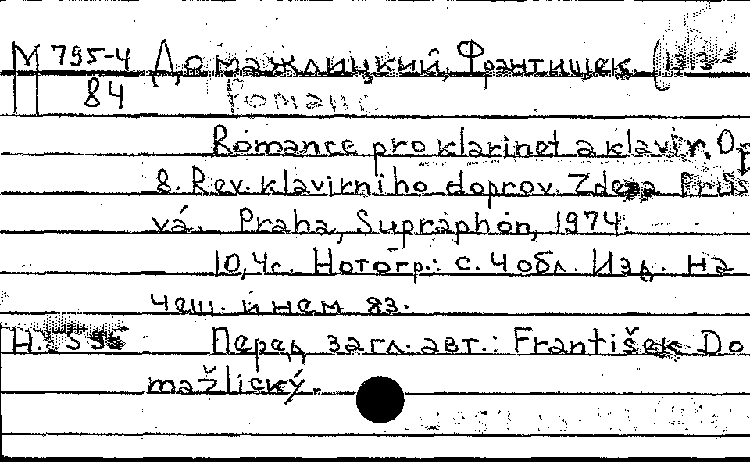 М 795-4 Домажлицкий, Франтишек (1913-
84
Romanc
Romance pro klarinet a klavír. Op
8. Rev. klavírního doprov. Zdena Průš
vá. Praha, Supraphon, 1974.
10,4с. Нотогр.: с. 4 обл. Изд. на
чеш. и нем яз.
Перед загл. авт.: František Do
mažlický.